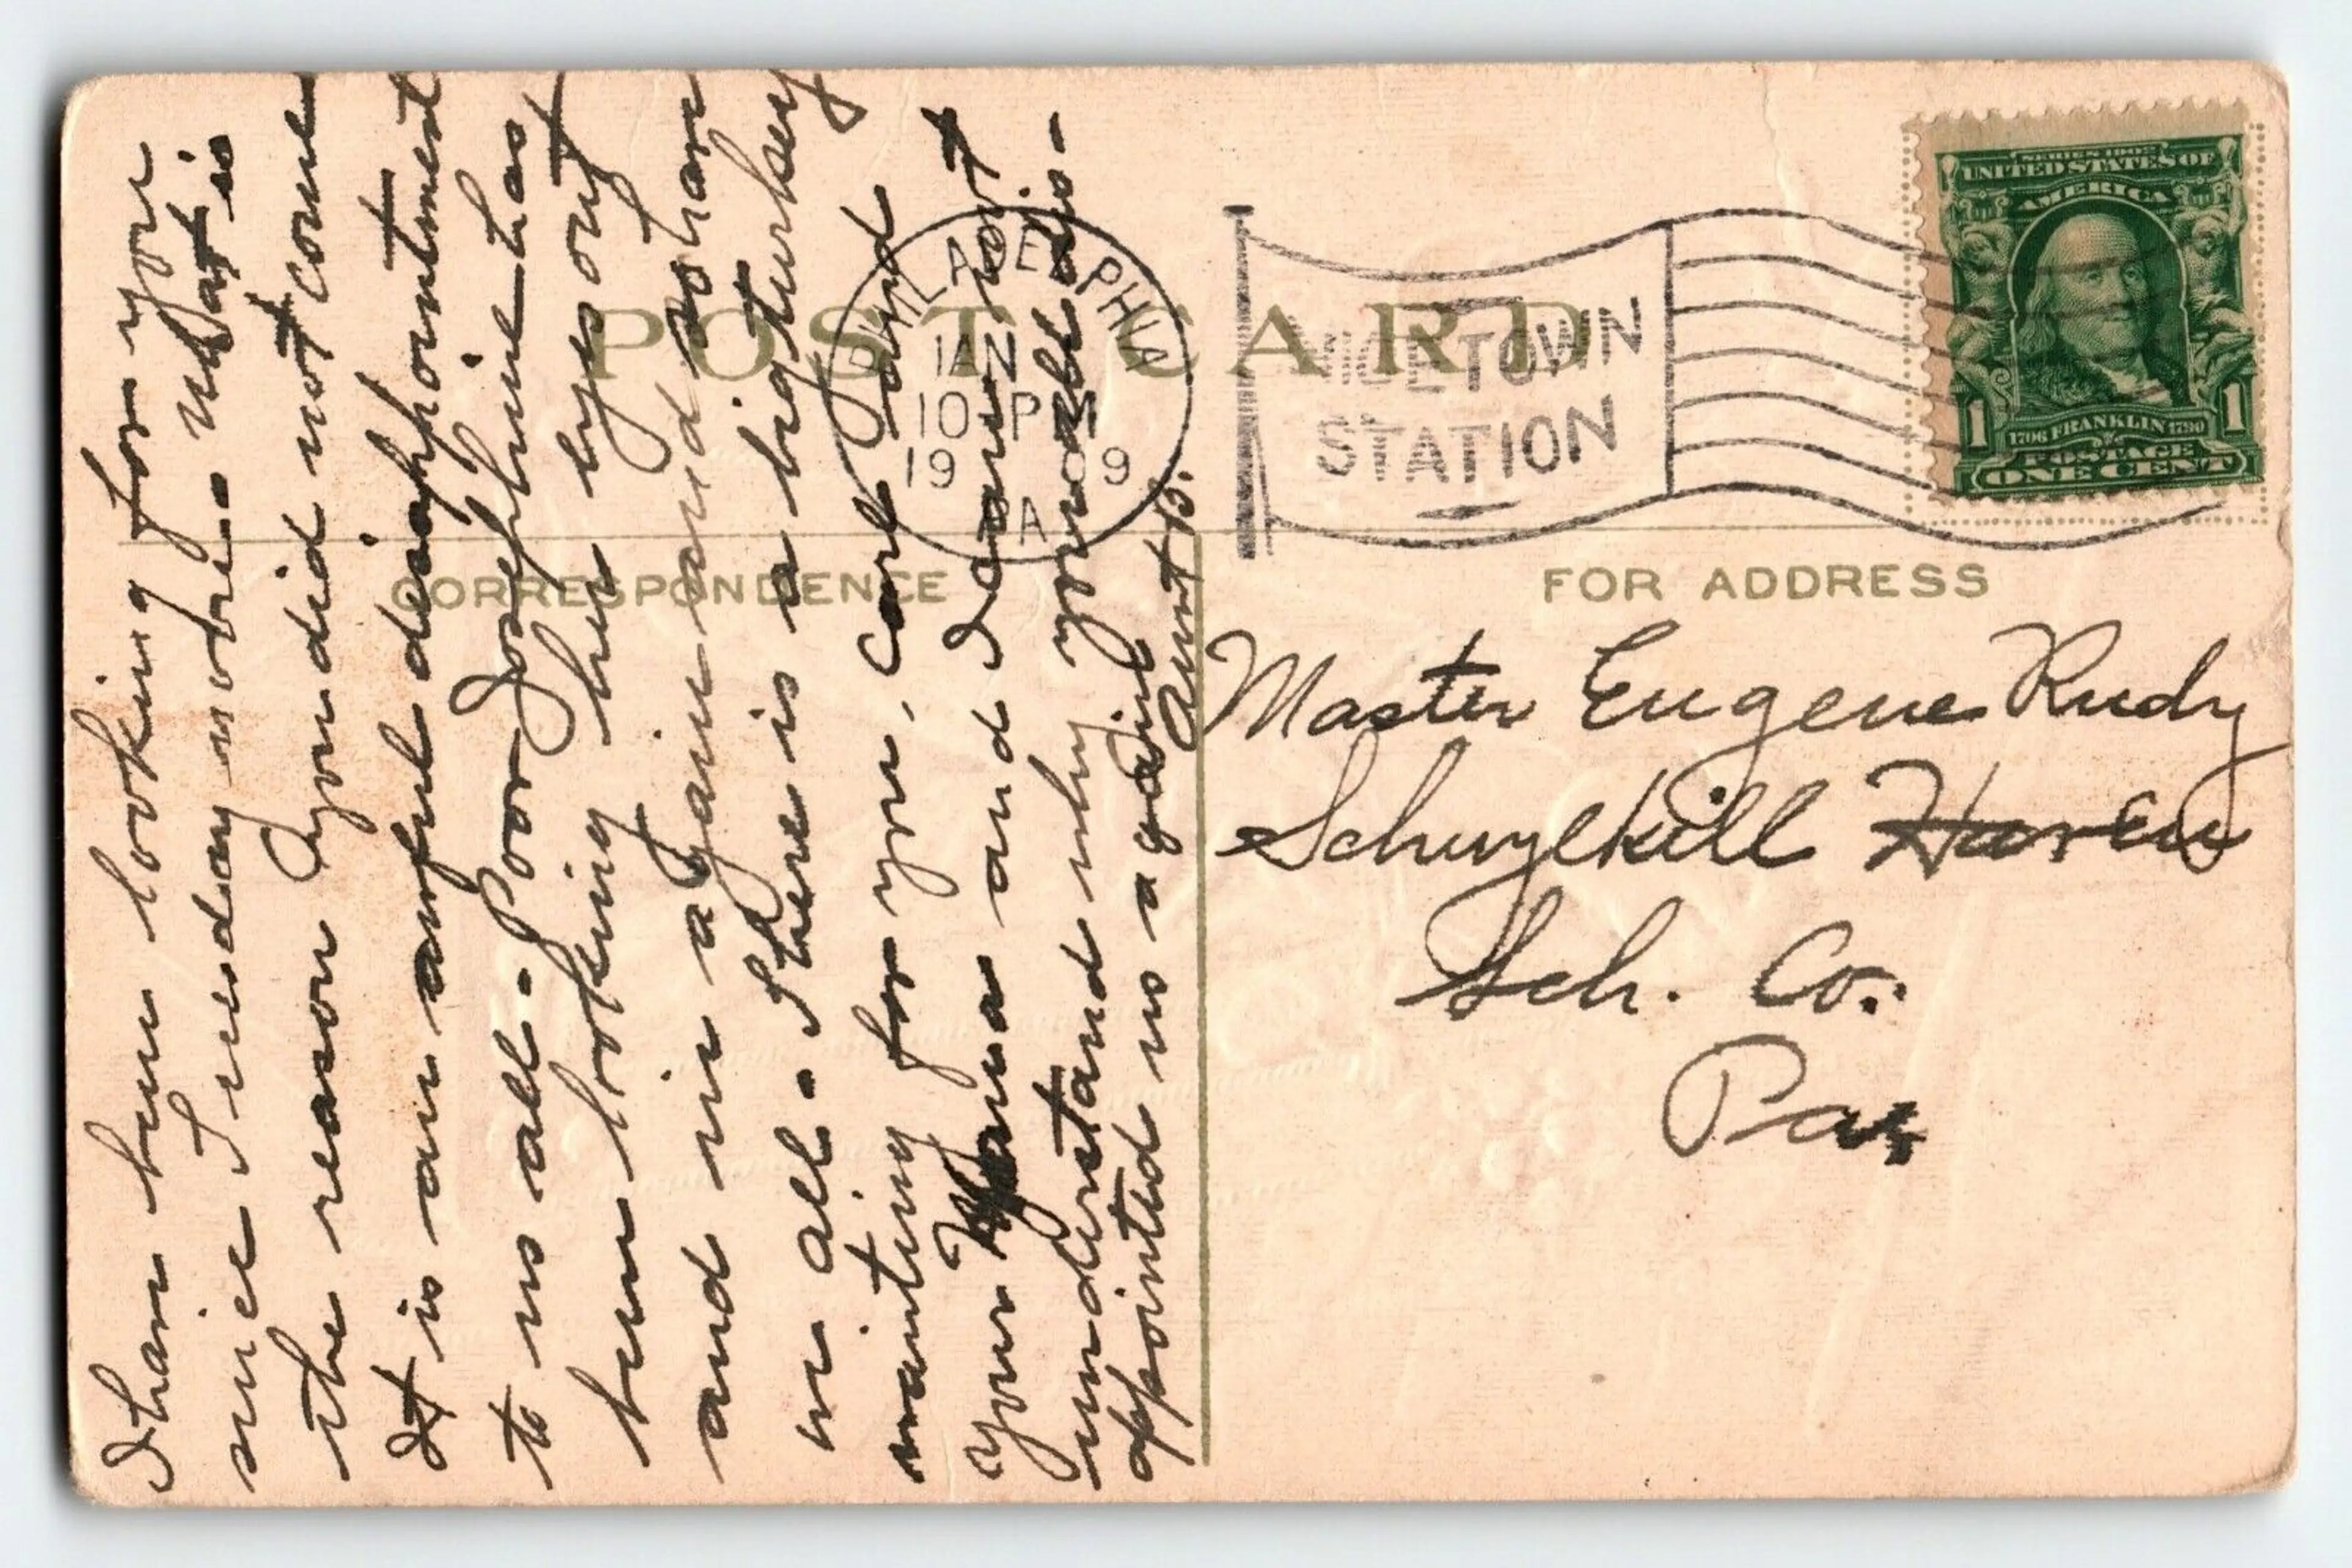 POST CARD
CORRESPONDENCE
FOR ADDRESS
PHILADELPHIA
JAN
10 PM
1909
PA
NICETOWN
STATION
SERIES 1902
UNITED STATES OF
AMERICA
1706 FRANKLIN 1790
POSTAGE
1 1
ONE CENT
I have been looking for you
since Sunday morn. What is
the reason you did not come
It is an awful disappointment
to us all. Poor Josephine has
been looking her eyes out
and in again and so have
we all. There is a big turkey
waiting for you. Carl and
your Mama and I cannot
understand why you dis-
appointed us again
Aunt B.
Master Eugene Rudy
Schuylkill Haven
Sch. Co.
Pa